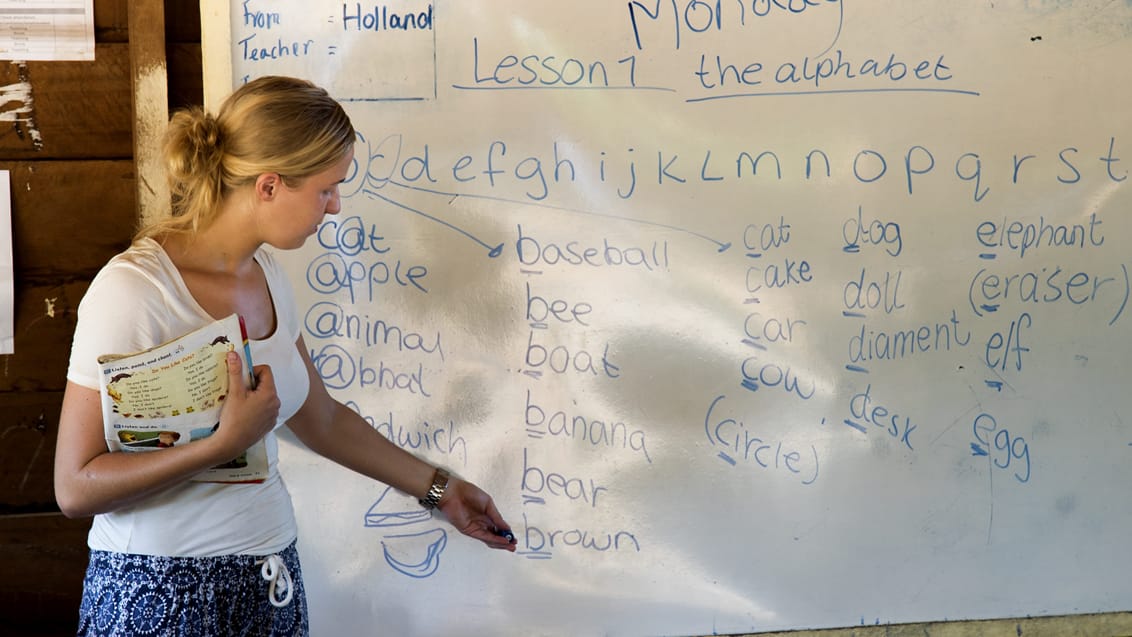 From : Holland
Teacher :
Monday
Lesson 1 the alphabet
c d e f g h i j k L m n o p q r s t
cat
apple
animal
baseball
bee
boat
banana
bear
brown
cat
cake
car
cow
(circle)
dog
doll
diament
desk
elephant
(eraser)
elf
egg
Listen, point, and chant.
Do You Like Cats?